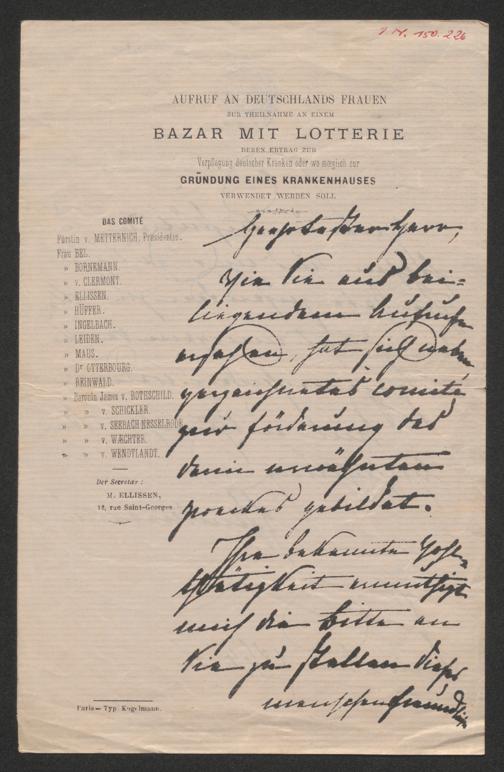 I. N. 150.226
AUFRUF AN DEUTSCHLANDS FRAUEN
ZUR THEILNAHME AN EINEM
BAZAR MIT LOTTERIE
DEREN ERTRAG ZUR
Verpflegung deutscher Kranken oder wo möglich zur
GRÜNDUNG EINES KRANKENHAUSES
VERWENDET WERDEN SOLL
DAS COMITÉ
Fürstin v. METTERNICH, Präsidentin.
Frau BEL.
» BORNEMANN.
» v. CLERMONT.
» ELLISSEN.
» HÜFFER.
» INGELBACH.
» LEIDEN.
» MAUS.
» Dr OTTERBOURG.
» REINWALD.
» Baronin James v. ROTHSCHILD.
» » v. SCHICKLER.
» » v. SEEBACH NESSELRODE
» » v. WÆCHTER.
» » v. WENDTLANDT.
Der Secretar :
M. ELLISSEN,
18, rue Saint-Georges
Geehrtester Herr,
Wie Sie aus bei-
liegendem Aufrufe
ersehen, hat sich neben
gezeichnetes Comité
zur Förderung des
darin erwähnten
Zweckes gebildet.
Ihre bekannte Wohl-
thätigkeit ermuthigt
mich die Bitte an
Sie zu stellen dieses
menschenfreundliche
Paris — Typ. Kugelmann.